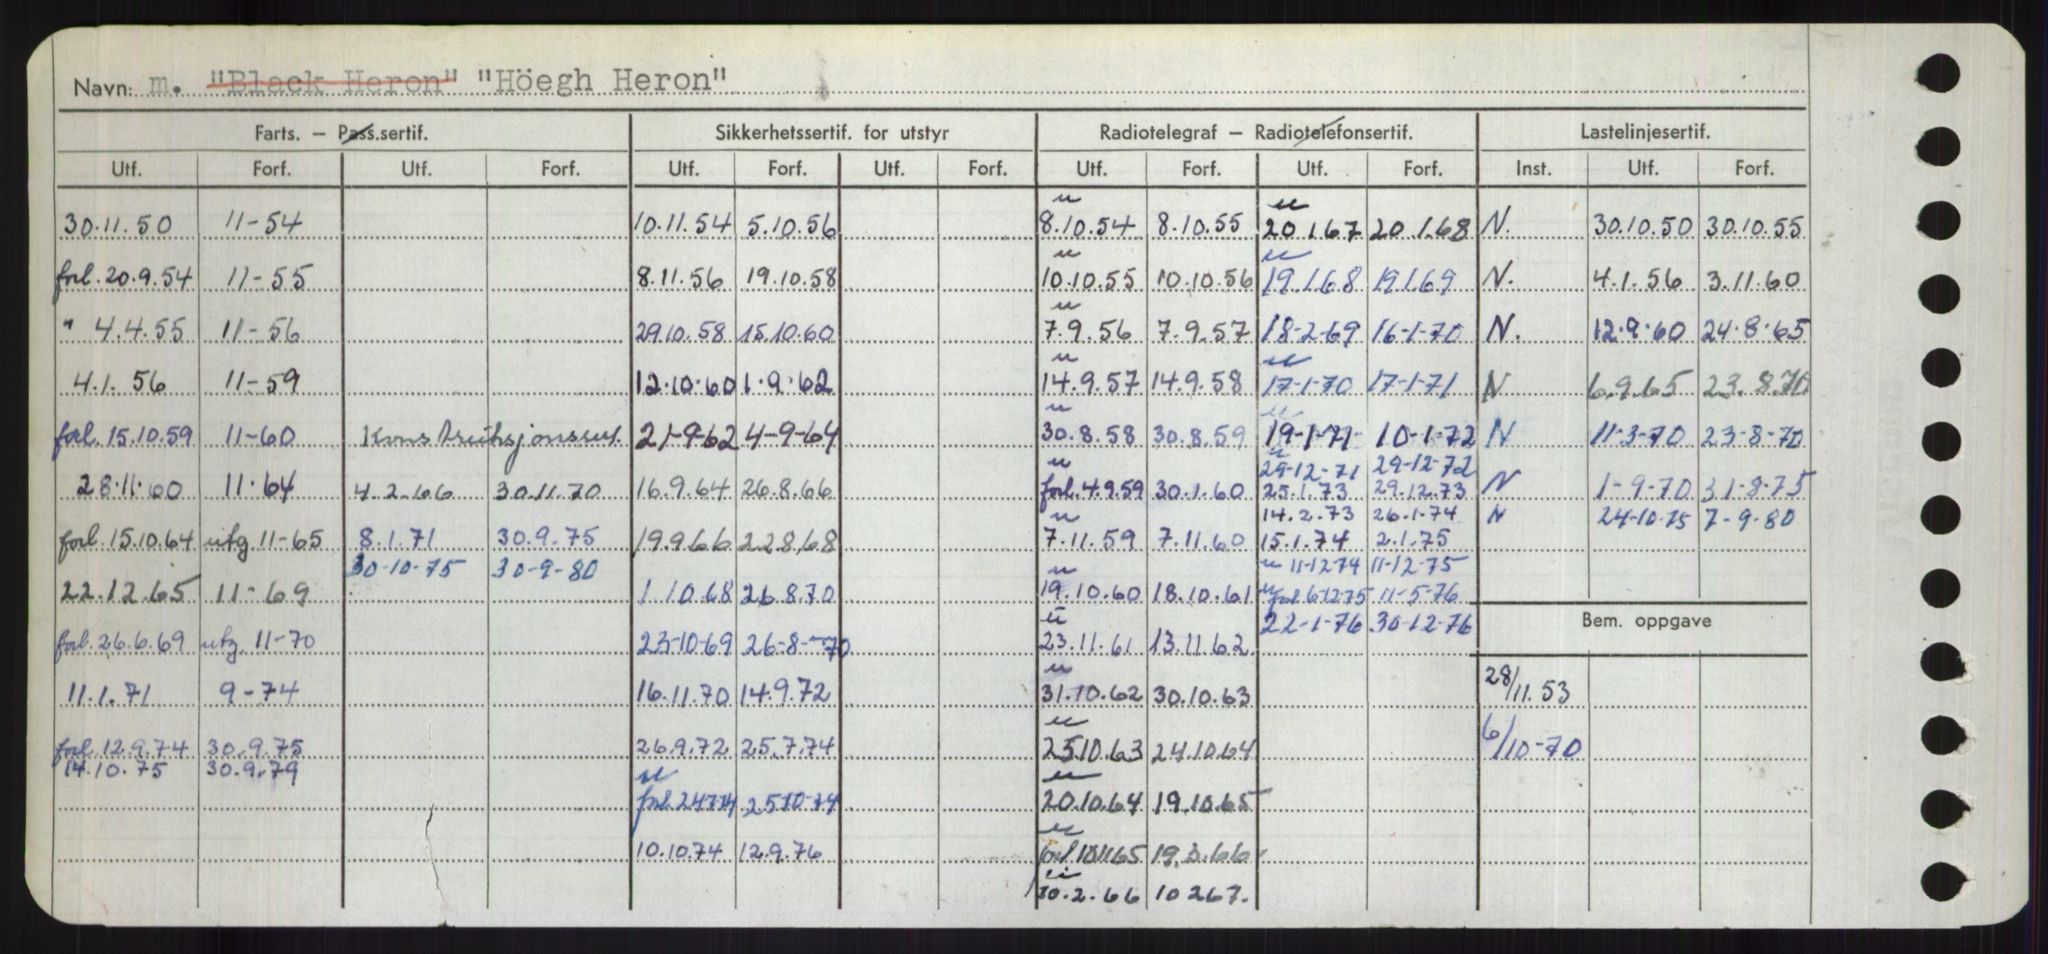 Navn: m. "Black Heron" "Höegh Heron"
Farts. – Pass.sertif. Sikkerhetssertif. for utstyr Radiotelegraf – Radiotelefonsertif. Lastelinjesertif.
Utf. Forf. Utf. Forf. Utf. Forf. Utf. Forf. Utf. Forf. Utf. Forf. Inst. Utf. Forf.
u u
30.11.50 11-54 10.11.54 5.10.56 8.10.54 8.10.55 20.1.67 20.1.68 N. 30.10.50 30.10.55
u u
forl. 20.9.54 11-55 8.11.56 19.10.58 10.10.55 10.10.56 19.1.68 19.1.69 N. 4.1.56 3.11.60
u
" 4.4.55 11-56 29.10.58 15.10.60 7.9.56 7.9.57 18-2-69 16-1-70 N. 12.9.60 24.8.65
u u
4.1.56 11-59 12.10.60 1.9.62 14.9.57 14.9.58 17-1-70 17-1-71 N 6.9.65 23.8.70
u u
forl. 15.10.59 11-60 21-9-62 4-9-64 30.8.58 30.8.59 19-1-71 10-1-72 N 11-3-70 23-8-70
u u 29-12-71 29-12-72
28.11.60 11.64 4.2.66 30.11.70 16.9.64 26.8.66 forl. 4.9.59 30.1.60 25.1.73 29.12.73 N 1-9-70 31-8-75
u 14.2.73 26.1.74 N 24-10-75 7-9-80
forl. 15.10.64 utg. 11-65 8.1.71 30.9.75 19.9.66 22.8.68 7.11.59 7.11.60 15.1.74 2.1.75
30-10-75 30-9-80 u u 11-12-74 11-12-75
22.12.65 11-69 1.10.68 26.8.70 19.10.60 18.10.61 u forl. 6-12-75 11-5-76
u 22-1-76 30-12-76
Bem. oppgave
forl. 26.6.69 utg. 11-70 23-10-69 26-8-70 23.11.61 13.11.62
u
11.1.71 9-74 16.11.70 14.9.72 31.10.62 30.10.63 28/11.53
u
forl. 12.9.74 30.9.75 26.9.72 25.7.74 25.10.63 24.10.64 6/10-70
14.10.75 30.9.79 u u
forl. 24-7-74 25-10-74 20.10.64 19.10.65
u
10.10.74 12.9.76 forl. 10.11.65 19.3.66
u
10.2.66 10.2.67.